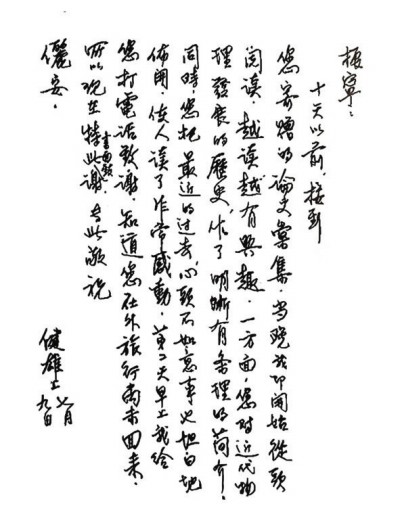 振寧：
十天以前，接到
您寄贈的論文彙集．當晚就即開始從頭
閱讀．越讀越有興趣．一方面，您對近代物
理發展的歷史，作了明晰有条理的簡介．
同時，您把最近的过去，心頭不如意事也坦白地
佈聞．使人讀了非常感動．第二天早上我給
您打電話致謝．知道您在外旅行尚未回來．
所以現在特此書面致謝．专此敬祝
儷安．
健雄上 七月九日